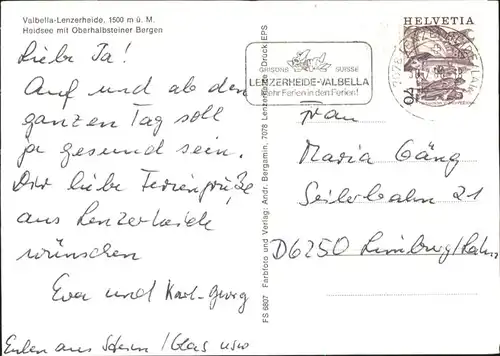 Valbella-Lenzerheide, 1500 m ü. M.
Heidsee mit Oberhalbsteiner Bergen
Liebe Ja!
Auf und ab den
ganzen Tag soll
ja gesund sein.
Dir liebe Feriengrüße
aus Lenzerheide
wünschen
Eva und Karl-Georg
Eulen aus / Glas usw
FS 6807 Farbfoto und Verlag: Andr. Bergamin, 7078 Lenzerheide Druck EPS
HELVETIA
GRISONS SUISSE
LENZERHEIDE-VALBELLA
Mehr Ferien in den Ferien!
7078 LENZERHEIDE
40
Frau
Maria Gäng
Seilerbahn 21
D6250 Limburg/Lahn